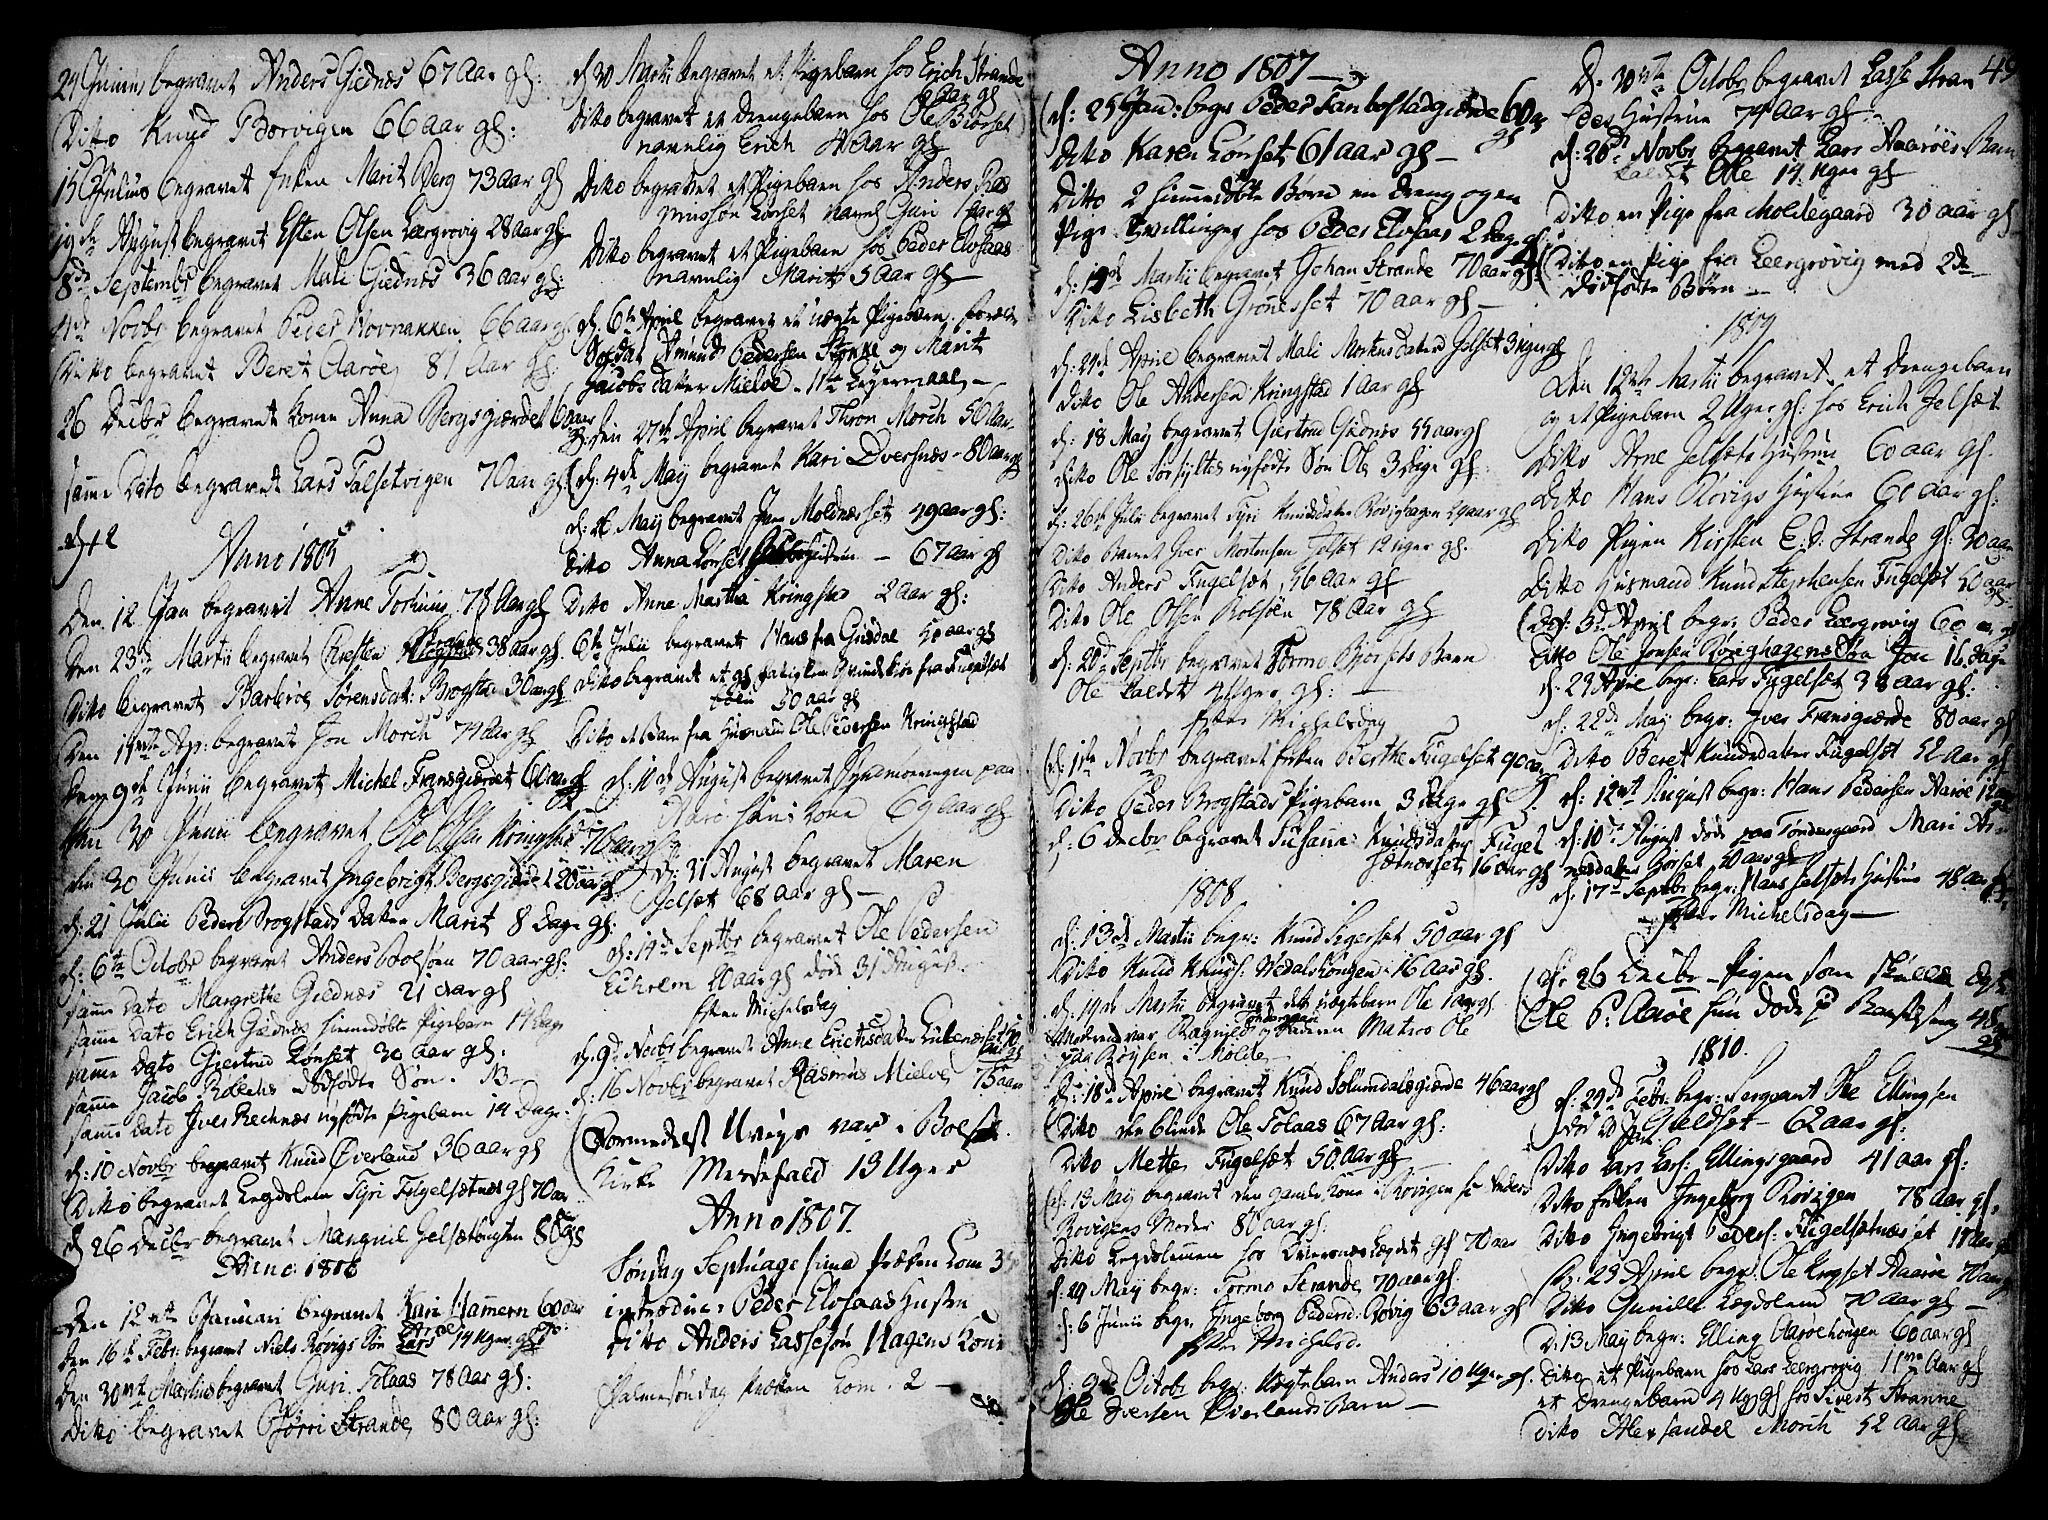 29 Junius begravet Anders Giednæs 67 Aar gl:
Ditto Knud Borvigen 66 aar gl:
15 Julius begravet Enken Marit Berg 73 aar gl
19de August begravet Esten Olsen Leergrovig 28 aar gl
8de Septembr begravet Mali Giednæs 36 aar gl:
4de Novbr begravet Peder Hovnakken 66 aar gl
Ditto begravet Beret Aarøe 81 Aar gl:
26 Decbr begravet Konen Anna Bergsgiærdet 60 aar
samme Dato begravet Lars Talsetvigen 70 aar gl
Anno 1805
Den 12 Jan begravet Anne Torhuus 78 Aar gl
Den 23de Martii begravet Christen 38 aar gl.
Ditto begravet Barbroe Sørensdat: Brogstad 30 aar gl
Den 11te Ap: begravet Jon Morch 74 Aar gl
Den 9de Junii begravet Michel Fransgiærdet 60 aar gl
den 30 Junii begravet Ole Olsen Kringstad 76 aar gl
den 30 Junii begravet Ingebrigt Bergsgiærdet 20 aar gl
d: 21 Julii Peder Brogstads Datter Marit 8 Dage gl:
d: 6te Octobr begravet Anders Bolsøen 70 aar gl:
samme Dato Margrethe Giednæs 21 Aar gl
samme Dato Erich Giednæs hiemmedøbte Pigebarn 14 Dage
samme Dato Giertrud Lønset 30 aar gl:
samme Jacob Røbekes dødfødte Søn. NB
samme Dato Iver Recknæs nyfødte Pigebarn 14 Dage.
d: 10 Novbr begravet Knud Øverland 36 aar gl
Ditto begravet Legdslem Tyri Fugelsætnæs gl 70 aar
d 26 Decbr begravet Mangnil Gelsætbugten 80 gl
Anno 1806
Den 12te Januari begravet Kari Hammern 60 aar
Den 16de Febr: begravet Niels Røvigs Søn Lars 14 Uger gl
Den 30te Martius begravet Guri Folaas 78 Aar gl:
Ditto begravet Strande 80 aar gl:
d 30 Martii begravet et Pigebarn hos Erich Strande
Aar gl
Ditto begravet et Drengebarn hos Ole Biørset
navnlig Erich 4 Aar gl
Ditto begravet et Pigebarn hos Anders Ras
mussøn Lønset navnl Guri 1 Aar gl
Ditto begravet et Pigebarn hos Peder Elvsaas
navnlig Marit 5 Aar gl
d. 6te April begravet et uægte Pigebarn. foræld:
Soldat Amund Pedersen og Marit
Jacobs Datter Mielve. 11te Leyermaal
Den 27de April begravet Thron Morch 56 Aar
d: 4de Maÿ begravet Kari Dversnæs 80 aar gl
d. 26 Maÿ begravet Molnærset 49 aar gl:
Ditto Anna Lønset 67 aar gl
Ditto Anne Martha Kringstad 2 aar gl:
6te Julii begravet Hans fra Gusdal 40 aar gl
Ditto begravet et gl fattiglem Qvindekiøn fra Fugelsæt
50 aar gl
Ditto et Barn fra Huusmand Ole Pedersen Kringstad
d: 10de August begravet paa
Aarø hans Kone 69 aar gl
d: 31 August begravet Maren
Jelset 68 aar gl
d: 14de Septbr begravet Ole Pedersen
Eichrem 20 aar gl døde 31 August.
efter Michelsdag
d. 9de Novbr begravet Anne Erichsdatter
d: 16 Novbr begravet Rasmus Mielve 75 aar
Formedelst Uveyr var i Bolsøe
Kirke Messefald 13 Uger
Anno 1807.
Søndag Septuagesima Prækken Com 35
introduc: Peder Elvsaas Hustru
Ditto Anders Lassesøn Hagens Kone
Palmesøndag Prækken Com. 2
Anno 1807
d: 25 Jan: begr: Peder Tanbostadgiærde 60 aar
gl
Ditto Karen Lønset 61 aar gl
Ditto 2 hiemmedøbte Børn en Dreng og en
Pige Tvillinger hos Peder Elvsaas 2 Dage gl
d: 19de Martii begravet Johan Strande 70 aar gl
Ditto Lisbeth Grønesset 70 aar gl
d: 29de April begravet Mali Mortens Datter Jelset 3 Uger gl
Ditto Ole Andersen Kringstad 1 aar gl
d: 18 May begravet Giertrud Giednæs 55 aar gl
Ditto Ole Sørsyltes nyfødte Søn Ole 3 Dage gl:
d: 26de Julii begravet Tyri Knudsdatter Røvighagen 29 aar gl
Ditto Barnet Iver Mortensen Jelset 12 Uger gl.
Ditto Anders Fugelsæt 56 aar gl
Ditto Ole Olsen Bolsøen 78 aar gl
d: 20de Septbr begravet Tormo Biørsets Barn
Ole kaldet 4 Uger gl:
efter Michelsdag
d: 1te Novbr begravet Enken Berthe Fugelset 90 aar
Ditto Peder Brogstads Pigebarn 3 Dage gl
d: 6 Decbr begravet Susanna Knudsdatter Fugel
sætnæset 16 aar gl
1808
d: 13de Martii begr: Knud Sigerset 50 aar gl
Ditto Knud Knuds: Wedalshougen 16 Aar gl.
d. 19de Martii begravet det uægte barn Ole 1 aar gl
Moderen var Ragnild Tøndergaard og Faderen Matros Ole
paa Røysen i Molde
d: 18de April begravet Knud Solumdalsgiærde 46 aar gl
Ditto den blinde Ole Folaas 67 Aar gl:
Ditto Mette Fugelsæt 50 aar gl
d: 13 May begravet den gamle Kone i Røvigen Anders
Røvigens Moder 80 aar gl:
Ditto Legdslemmen hos Dversnæs Lægdet gl 70 aar
d. 29 May begr: Tormo Strande 70 aar gl.
d: 6 Junii begr. Ingeborg Pedersd: Røvig 63 aar gl
efter Michelsd.
d. 9de Octobr begr: Uægtebarn Anders 10 Uger gl.
Ole Iversen Øverlands Barn
D. 30te Octobr begravet Lasse Stran 49
des Hustrue 74 aar gl
d: 20de Novbr begravet Lars Aarøes Barn
kaldet Ole 14 Uger gl
Ditto en Pige fra Moldegaard 30 aar gl
Ditto en Pige fra Leergrovig med 2de
dødfødte Børn
1809
Den 12te Martii begravet et Drengebarn
og et Pigebarn 2 Uger gl: hos Erich Jelset
Ditto Arne Jelsæts Hustrue 60 aar gl.
Ditto Hans Røvigs Hustrue 60 aar gl:
Ditto Pigen Kirsten E: D: Strande gl: 30 aar
Ditto Huusmand Knud Stephensen Fugelsæt 50 aar
gl.
d: 3de April begr: Peder Leergrovig 60 aar gl
Ditto Ole Jonsen Røvighagens Søn Jon 16 Dage
d. 23 April begr: Lars Fugelset 38 aar gl:
d. 22de May begr: Iver Fransgiærde 80 aar gl
Ditto Beret Knudsdatter Fugelsæt 52 Aar gl
d: 12te August begr: Hans Pedersen Aarøe 12 aar
d: 10de August døde paa Tøndergaard Mari Ar
nesdatter Hørset 50 aar gl
d: 17de Septbr begr: Hans Jelsæts Hustrue 48 aar gl.
efter Michelsdag
d: 26 Decbr Pigen som skulle ægte
Ole P: Aarøe hun døde 48
1810.
d: 29de Febr: begr: Sergeant Ole Ellingsen
Gieldset 62 aar gl:
Ditto Lars Lars: Ellingsgaard 41 aar gl:
Ditto Enken Ingeborg Røvigen 78 aar gl.
Ditto Ingebrigt Peders: Fugelsætnæset 17 aar gl
d: 23 April begr: Ole Aarøe 70 aar gl
Ditto Gunille Lægdslem 70 aar gl
D. 13 May begr: Elling Aarøehougen 60 aar gl
Ditto et Pigebarn hos Lars Leergrovig 11 Aar gl
et Drengebarn 4 Ug gl hos Sivert Stranne
Ditto Alexsander Morch 52 aar gl